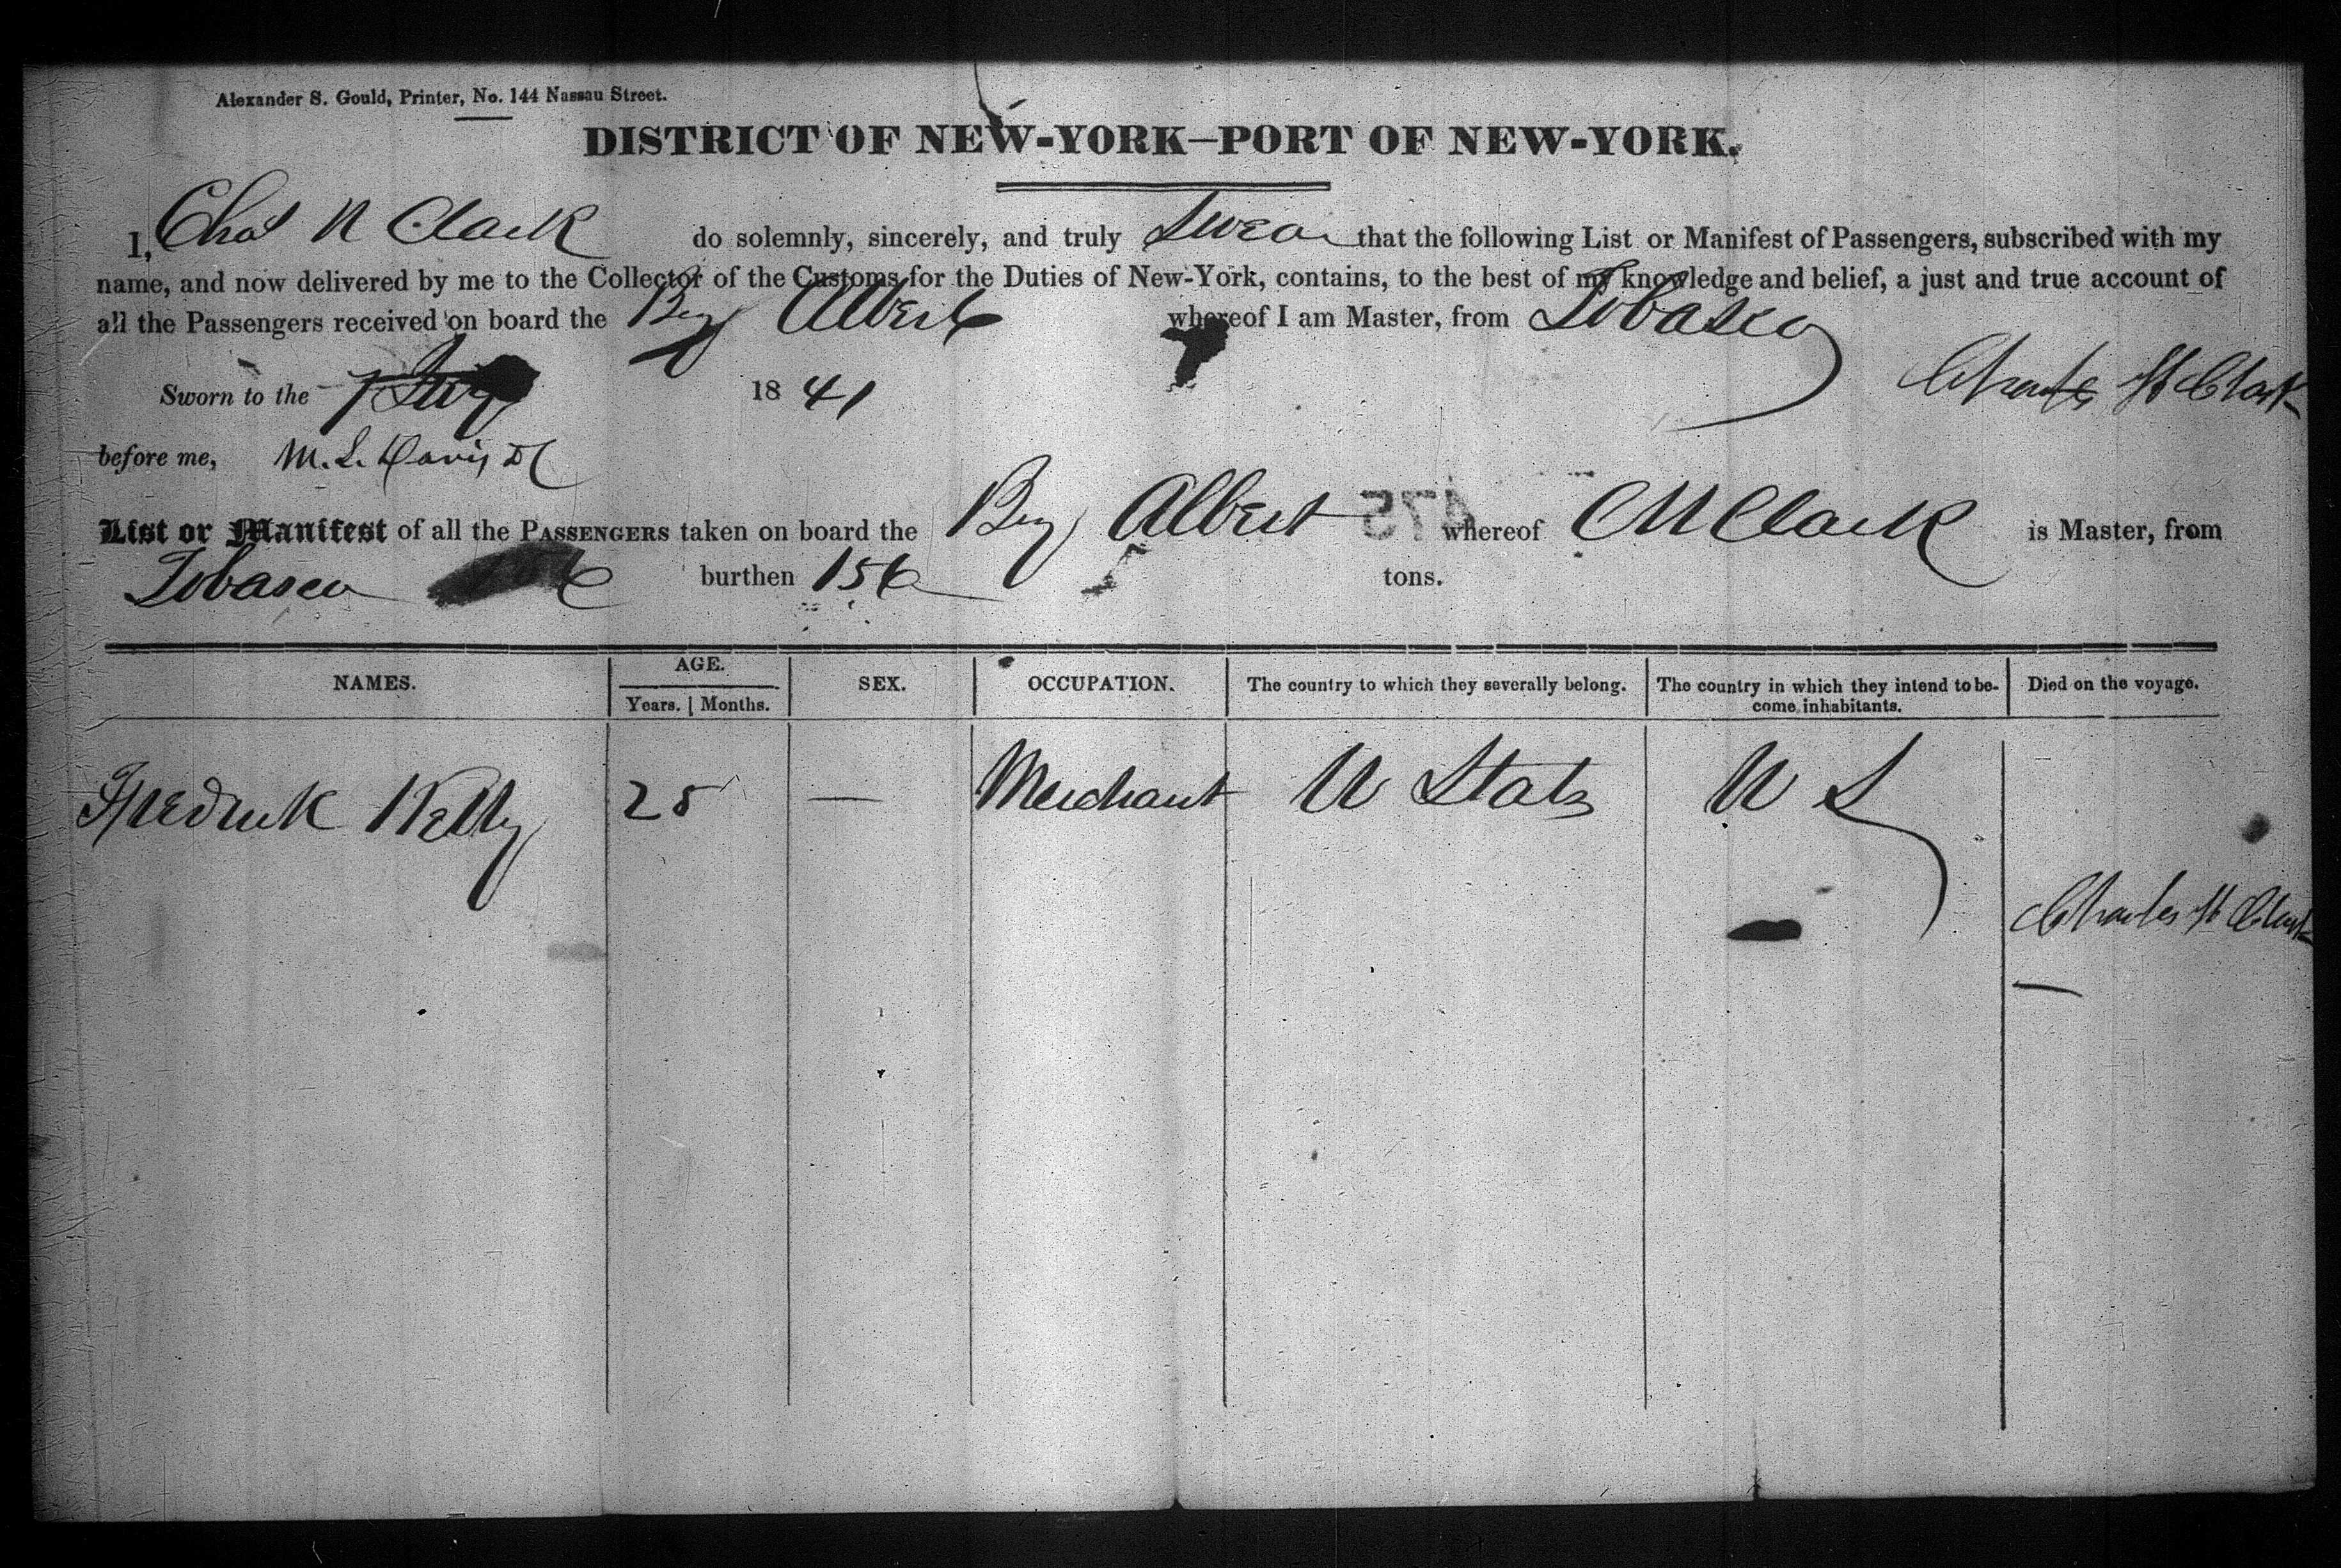 Alexander S. Gould, Printer, No. 144 Nassau Street.
DISTRICT OF NEW-YORK—PORT OF NEW-YORK.
I, Chas Clark do solemnly, sincerely, and truly Swear that the following List or Manifest of Passengers, subscribed with my
name, and now delivered by me to the Collector of the Customs for the Duties of New-York, contains, to the best of my knowledge and belief, a just and true account of
all the Passengers received on board the Brig Albert whereof I am Master, from Tobasco
Sworn to the 7 1841 Charles H Clark
before me, M. L. Davis
475
List or Manifest of all the PASSENGERS taken on board the Brig Albert whereof Clark is Master, from
Tobasco burthen 156 tons.
NAMES. AGE. SEX. OCCUPATION. The country to which they severally belong. The country in which they intend to be- Died on the voyage.
Years. Months. come inhabitants.
Fredrick Kelly 25 — Merchant U States U S
Charles H Clark
—